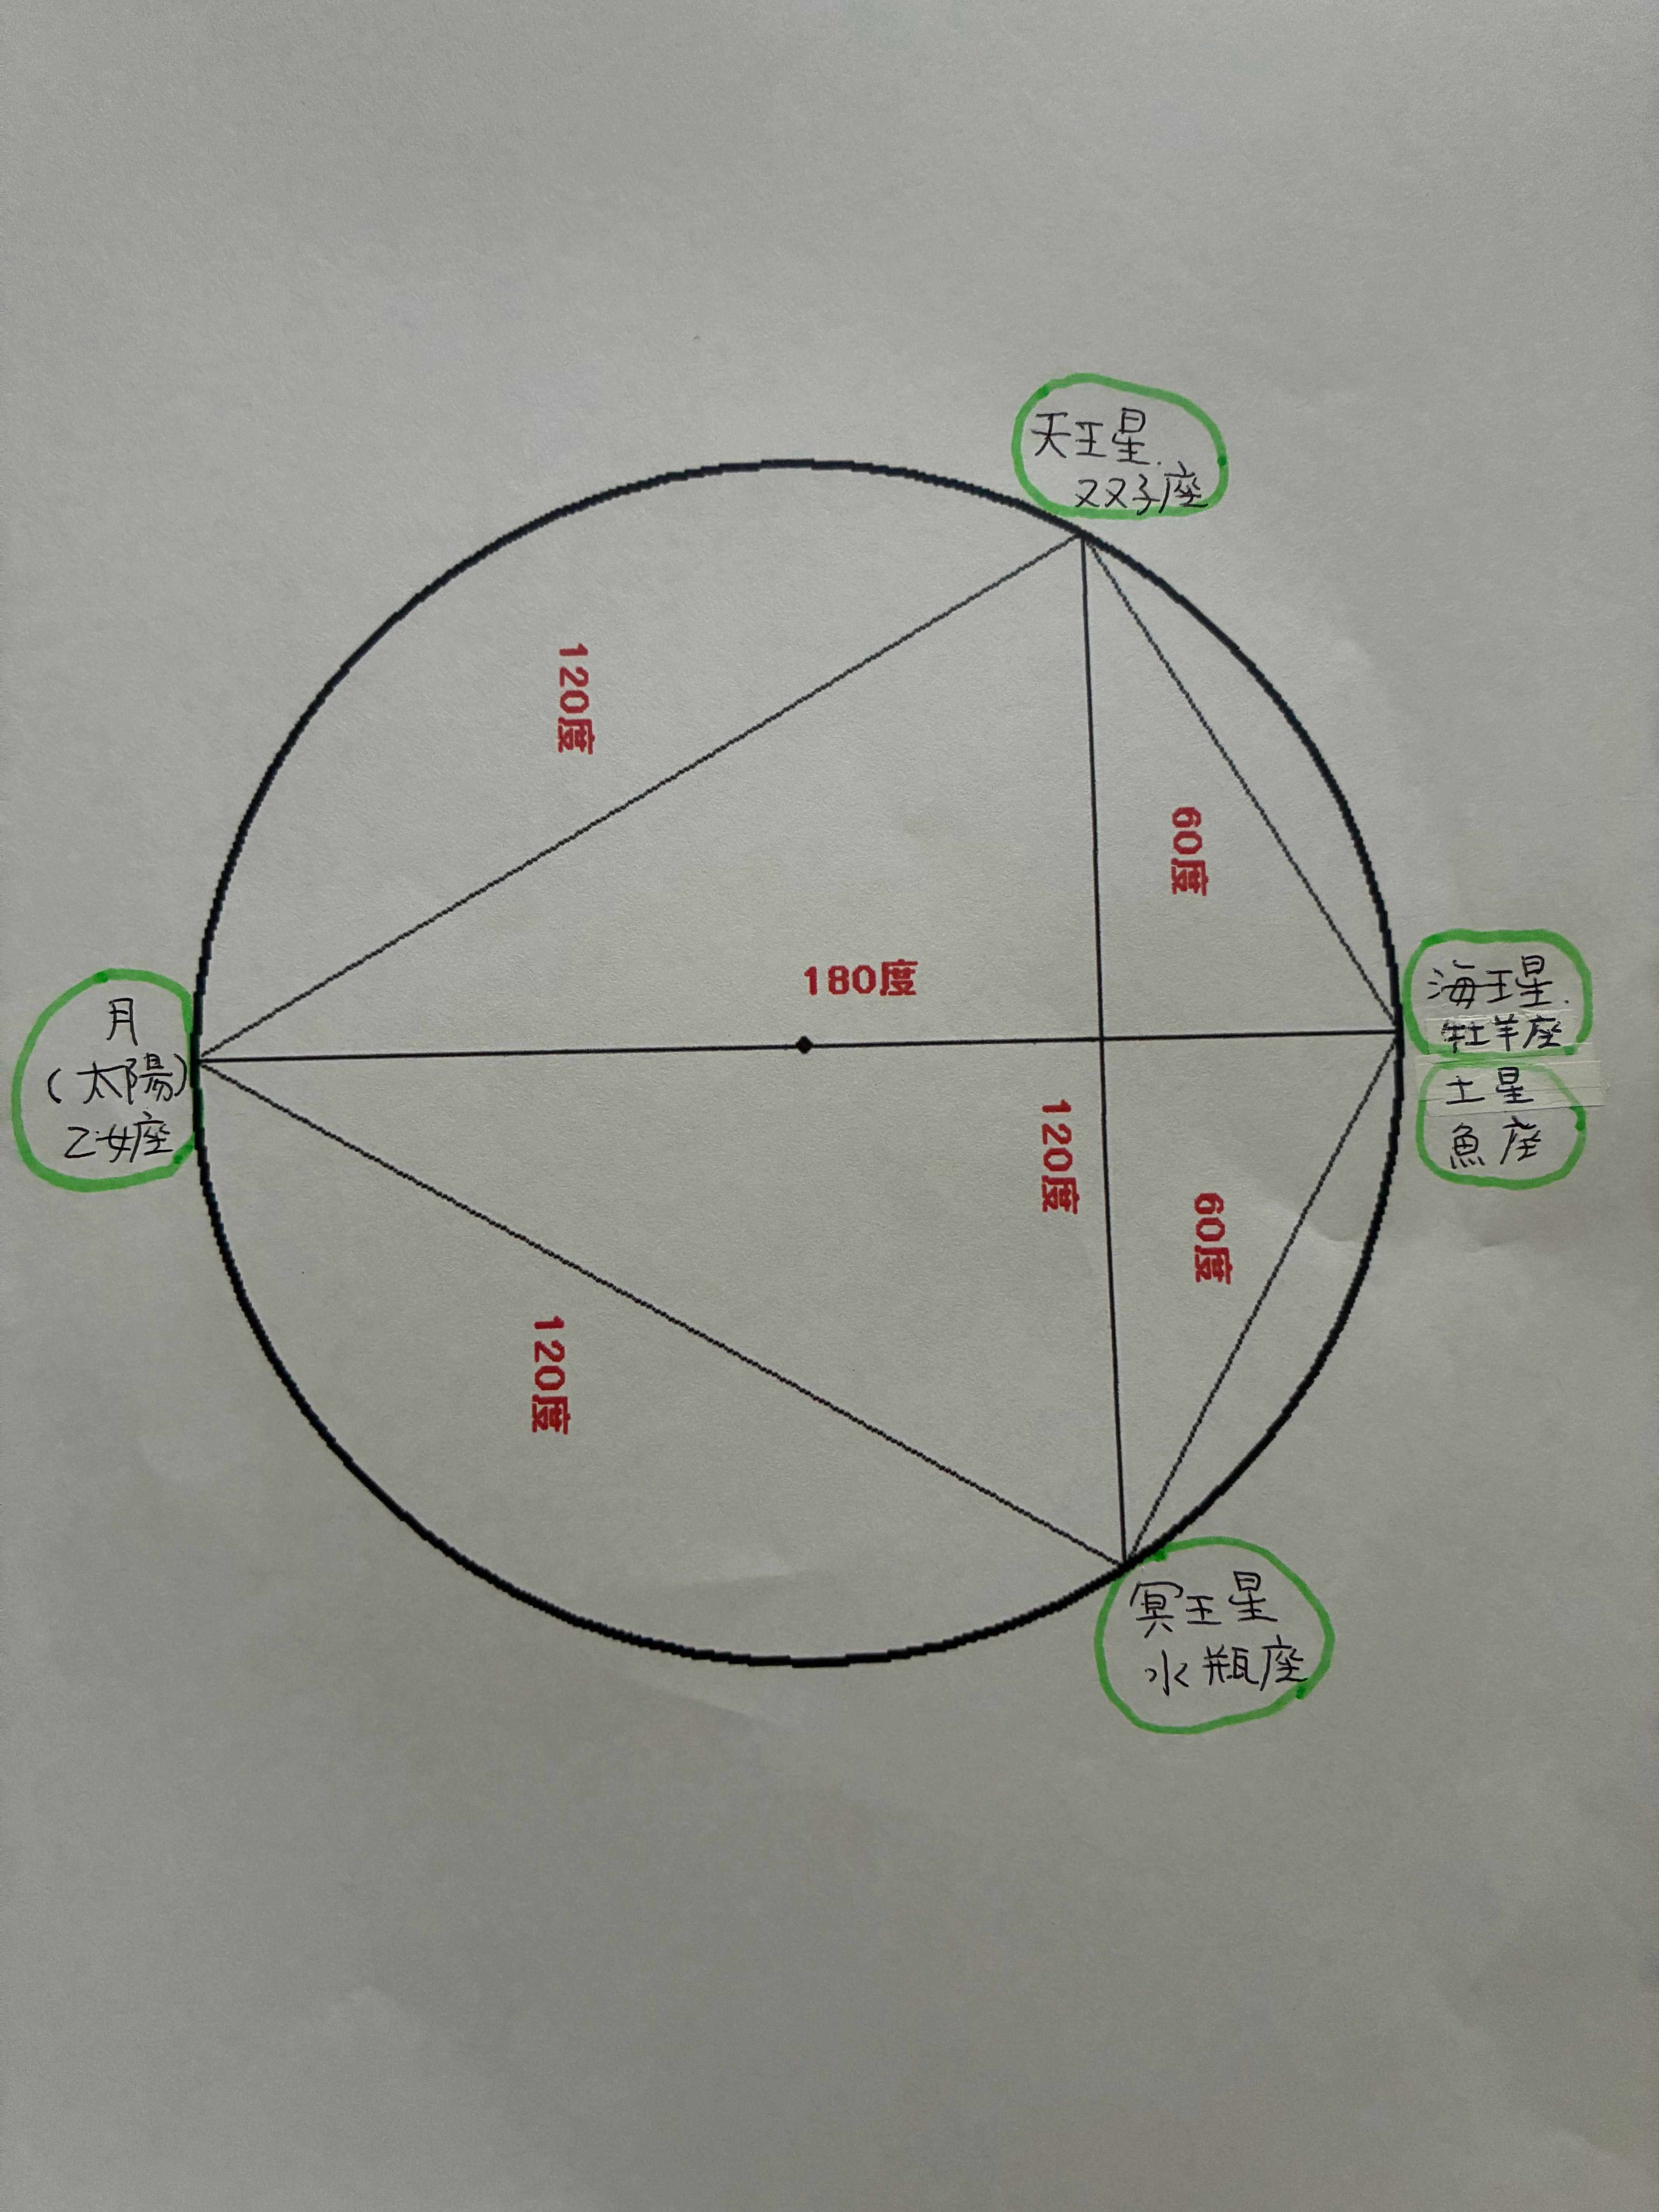 天王星.
双子座
120度
60度
海王星.
牡羊座
180度
月
(太陽)
乙女座
土星
魚座
120度
60度
120度
冥王星
水瓶座